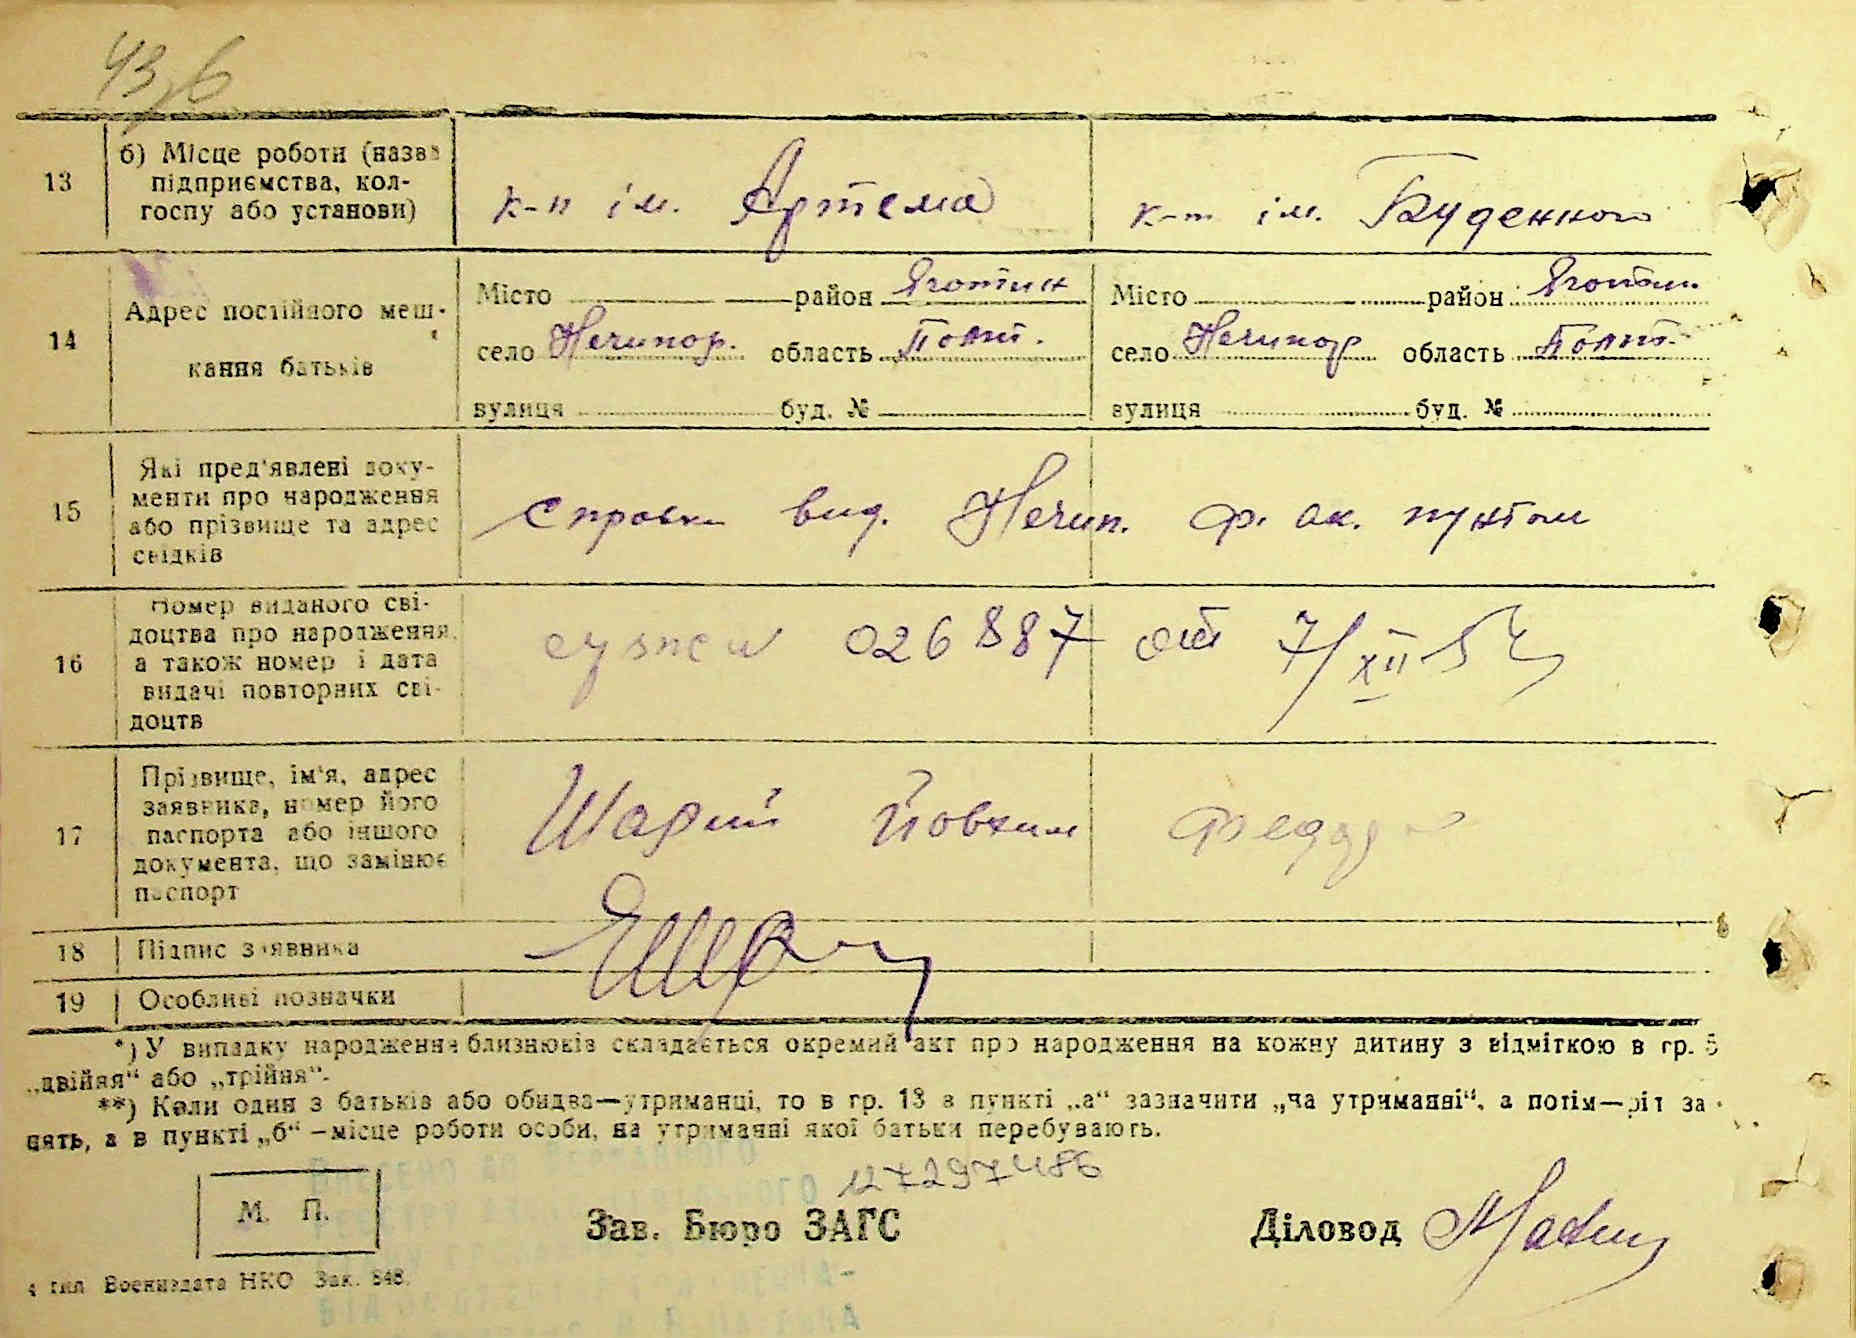 43
13
б) Місце роботи (назва
підприємства, кол-
госпу або установи)
к-п ім. Артема
к-т ім. Буденного
14
Адрес постійного меш-
кання батьків
Місто район Яготин
село Нечипор. область Полт.
вулиця буд. №
Місто район Яготин.
село Нечипор область Полт.
вулиця буд. №
15
Які пред'явлені доку-
менти про народження
або прізвище та адрес
свідків
справка вид. Нечип. ф. ак. пунктом
16
Номер виданого сві-
доцтва про народження,
а також номер і дата
видачі повторних сві-
доцтв
026887 от 7/XII
17
Прізвище, ім'я, адрес
заявника, номер його
паспорта або іншого
документа, що замінює
паспорт
Шарий Йовхим Федор
18 Підпис заявника
19 Особливі позначки
*) У випадку народження близнюків складається окремий акт про народження на кожну дитину з відміткою в гр. 5
„двійня“ або „трійня“.
**) Коли один з батьків або обидва—утриманці, то в гр. 13 в пункті „а“ зазначити „на утриманні“, а потім—рід за-
нять, а в пункті „б“ —місце роботи особи, на утриманні якої батьки перебувають.
Внесено до Державного
127297486
М. П.
Зав. Бюро ЗАГС
Діловод
4 тип Воениздата НКО Зак. 848.